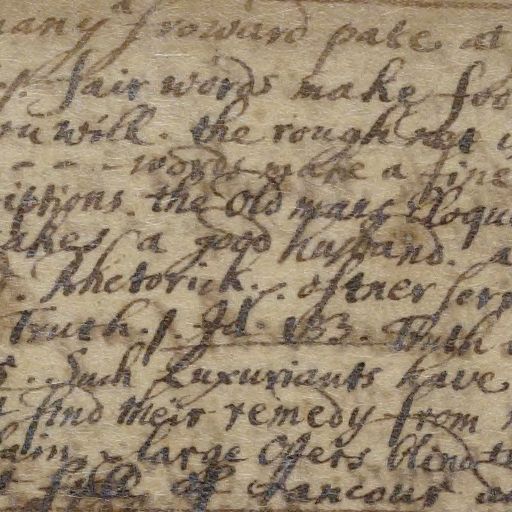 many froward pate at
fair words make foo
you will. the rough
- - - words make a fine
iptions. the Old mans Eloqu
akes a good husband. a
Rhetorick. oftner ser
Truth. p. Id. 133. Truth
5. Such Luxuriants have
find their remedy from
lain. large Offers blind
full of Rancour